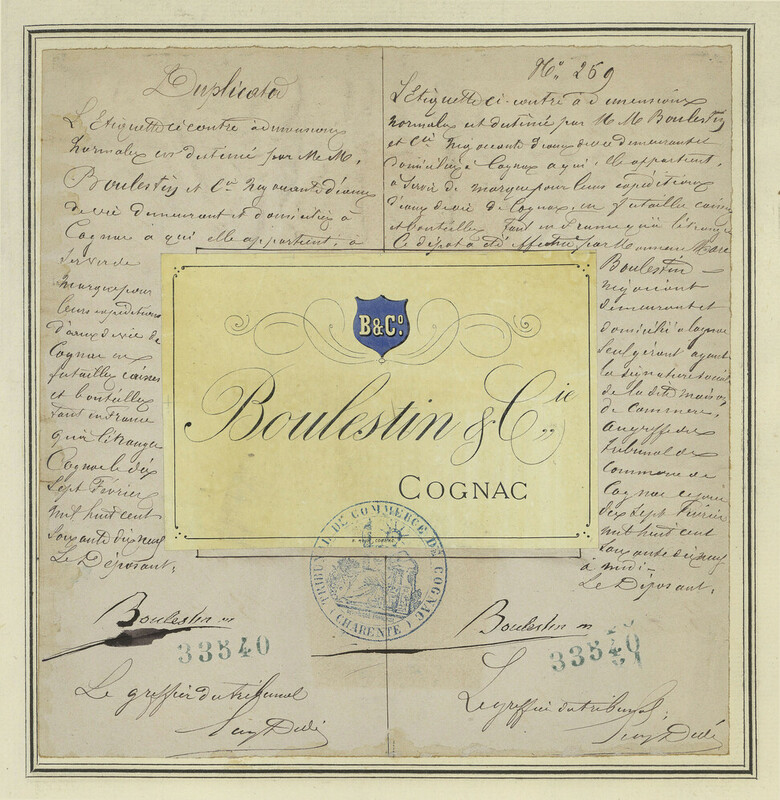 Duplicata
L'Etiquette ci contre à dimensions
Normales est destiné par M.M.
Boulestin et Cie Negociants d'eaux
de vie demeurant et domiciliés à
Cognac à qui elle appartient, à
servir de
marque pour
leurs expéditions
d'eaux de vie de
Cognac en
futailles caisses
et bouteilles
tant en France
qu'à l'étranger
Cognac le dix
Sept Février
mil huit cent
soixante dix neuf
Le Déposant,
Boulestin
33540
Le greffier du tribunal
No. 259
L'Etiquette ci-contre à dimensions
Normales est destiné par M.M. Boulestin
et Cie Negociants d'eaux de vie demeurant et
domiciliés à Cognac à qui elle appartient,
à servir de marque pour leurs expéditions
d'eaux de vie de Cognac, en futailles caisses
et bouteilles tant en France qu'à l'étranger
Ce dépot a été effectué par Monsieur Marc
Boulestin
négociant
demeurant et
domicilié à Cognac
seul gérant ayant
la signature sociale
de la dite maison
de commerce,
au greffe du
tribunal de
Commerce de
Cognac ce jour
dix sept Février
mil huit cent
soixante dix neuf
à midi
Le Déposant,
Boulestin
33540
Le greffier du tribunal,
B&Co.
Boulestin & Cie
COGNAC
TRIBUNAL DE COMMERCE DE COGNAC
(CHARENTE)